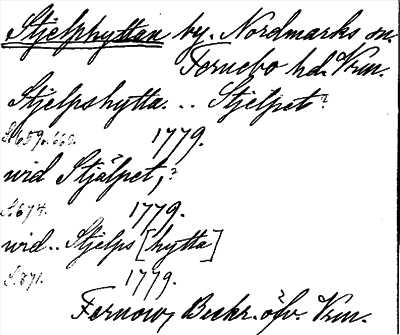 Stjelphyttan by. Nordmarks sn.
Fernebo hd. Vrm.
Stjelpshytta. .. Stjelpet?
S. 659. 660. 1779.
wid Stjälpet,?
S. 674. 1779.
wid.. Stjelps [hytta]
S. 871. 1779.
Fernow, Beskr. öfv. Vrm.